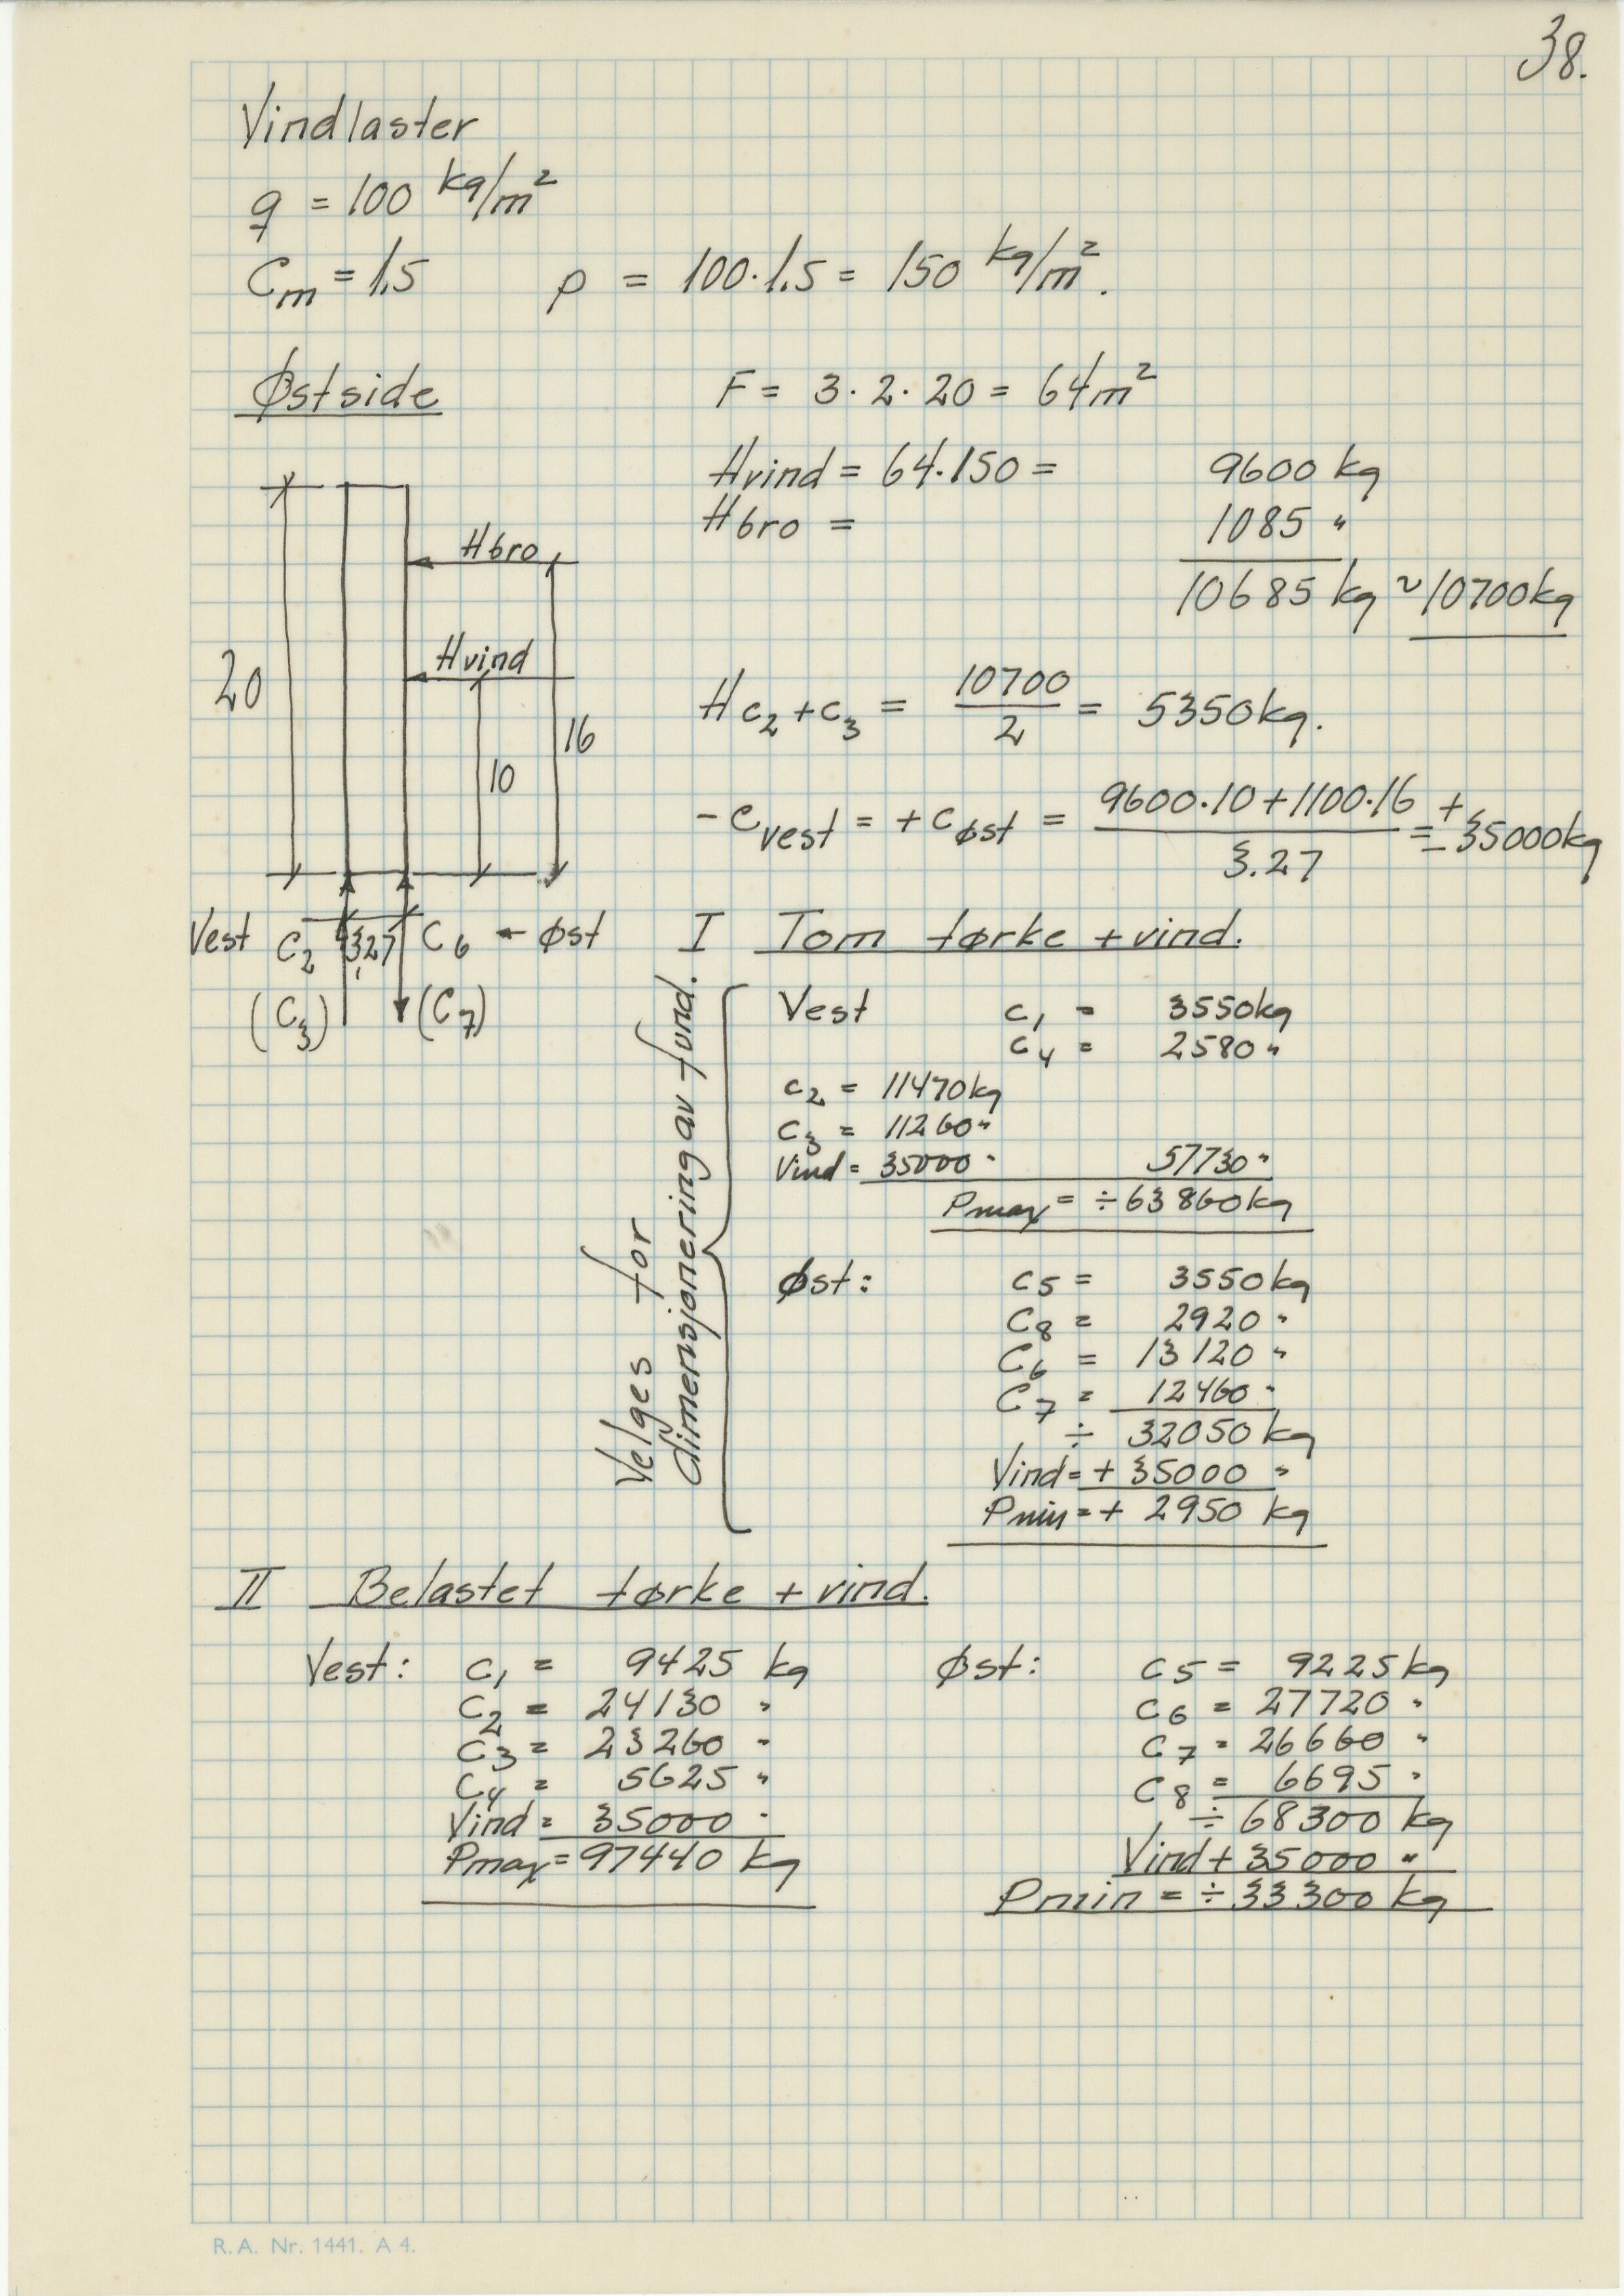 38.
Vindlaster
q = 100 kg/m²
Cm = 1.5 p = 100·1.5 = 150 kg/m².
Østside F = 3·2·20 = 64m²
Hvind = 64·150 = 9600 kg
Hbro = 1085 "
10685 kg ~ 10700kg
Hbro
Hvind
20
16
10
Hc₂+c₃ = 10700/2 = 5350kg.
-Cvest = +Cøst = (9600·10+1100·16)/3.27 = ±35000kg
Vest C₂ 3,27 C₆ ← Øst
(C₃) (C₇)
I Tom tørke + vind.
Velges for
dimensjonering av fund.
Vest C₁ = 3550kg
C₄ = 2580 "
C₂ = 11470kg
C₃ = 11260 "
Vind = 35000 " 57730 "
Pmax = ÷63860kg
Øst: C5 = 3550kg
C8 = 2920 "
C6 = 13120 "
C7 = 12460 "
÷ 32050 kg
Vind = + 35000 "
Pmin = + 2950 kg
II Belastet tørke + vind.
Vest: C₁ = 9425 kg
C₂ = 24130 "
C₃ = 23260 "
C₄ = 5625 "
Vind = 35000 "
Pmax = 97440 kg
Øst: C5 = 9225kg
C6 = 27720 "
C7 = 26660 "
C8 = 6695 "
÷ 68300 kg
Vind + 35000 "
Pmin = ÷ 33300 kg
R.A. Nr. 1441. A 4.